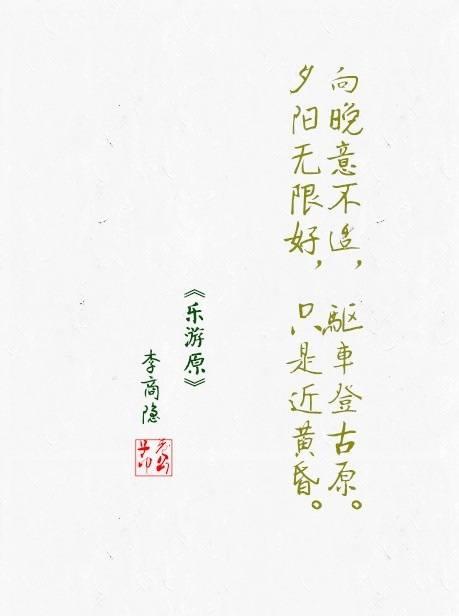 向晚意不适，驅車登古原。
夕阳无限好，只是近黄昏。
《乐游原》
李商隐